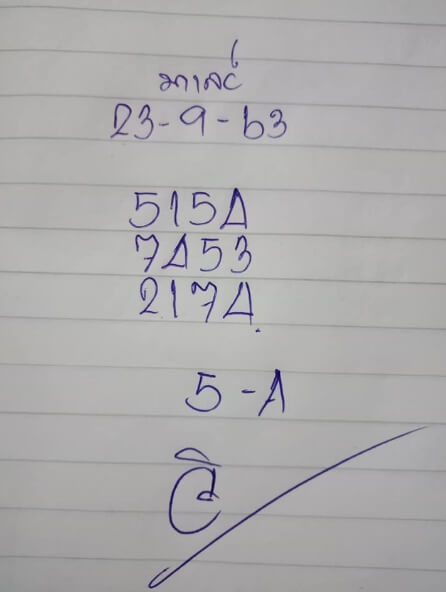 มาเลย์
23-9-63
5154
7453
2174.
5-4